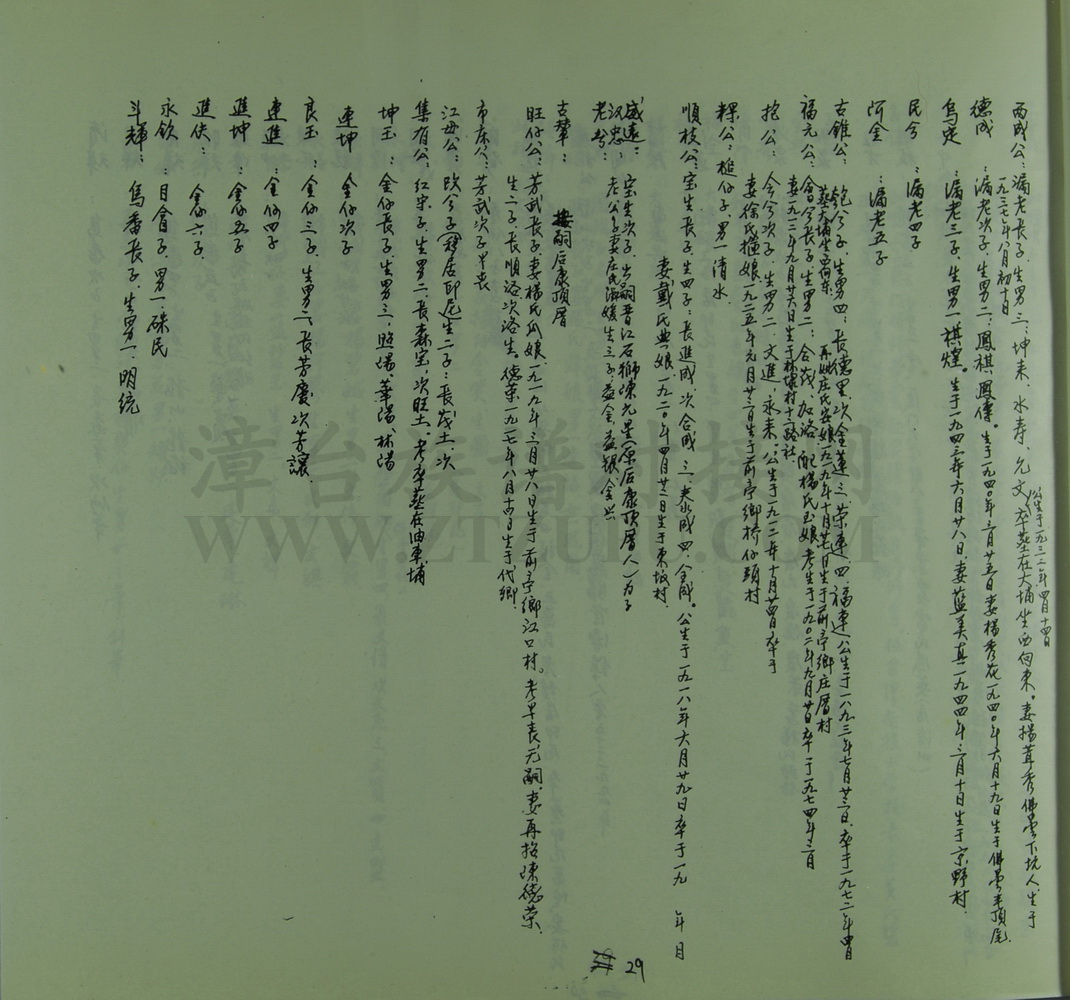 西成公：漏老長子，生男三：坤来、水寿、允文，卒葬在大埔坐西向東。妻楊茸秀佛曇下坑人生于
公生于一九三二年四月十四日
一九三七年八月初十日
德成：漏老次子，生男二，鳳祺，鳳傳。生于一九四〇年三月廿五日妻楊秀花一九四〇年六月十九日生于佛曇頂尾
烏定：漏老三子，生男一棋煌。生于一九四三年六月廿八日，妻藍美真一九四四年三月十日生于京野村
民兮：漏老四子
阿金：漏老五子
古錐公：鮑兮子，生男四：長德里，次金蓮，三荣連，四福連，公生于一八九三年七月廿三日，卒于一九七二年四日
葬大埔坐西向东 再娶庄氏安娘一九一九年十月廿七日生于前亭鄉庄厝村
福元公：含兮長子，生男二：合茂，加洛，配楊氏玉娘，考生于一九〇二年九月廿日卒于一九七四年三月
妻一九一二年九月廿六日生于林埭村十二路社
抱公：今兮次子，生男二，文進，永来。公生于一九一三年十月廿四日卒于
妻徐氏撞娘，一九二五年元月廿三日生于前亭鄉橋仔頭村
粿公：槌仔子，男一清水
順枝公：宝生長子，生四子：長進成，次合成，三泰成，四全成。公生于一九一八年六月廿九日卒于一九 年 月
妻戴氏典娘，一九二〇年四月廿二日生于東坂村
盛遠：宝生次子，出嗣晋江石獅陳允星（原后康頂厝人）为子
汉忠：
老兮：老公子妻庄氏海媛生三子：益金，益银，金兴
古輦：接嗣后康頂厝
旺仔公：芳武長子，妻楊氏瓜娘，一九一九年三月廿八日生于前亭鄉江口村。考早丧，无嗣，妻再招陳德荣，
生二子，長順洛次洛生。德荣一九一七年八月十四日生于代鄉
市床公：芳武次子早丧
江母公：欧兮子（移居印尼）生二子：長茂土，次
集有公：红宋子，生男二，長森宝，次旺土。考卒葬在油車埔
坤玉：金仔長子，生男三，照陽，華陽，林陽
連坤：金仔次子
良玉：金仔三子，生男二，長芳慶，次芳讓
連進：金仔四子
進坤：金仔五子
進伕：金仔六子
永欽：目拿子，男一，碌民
斗輝：烏番長子，生男一，明統
29
漳台族谱对接网